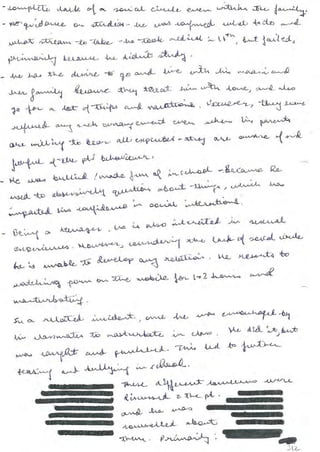 - complete lack of a social circle even within the family.
- no guidance on studies - he was confused what to do and
what stream to take - he took medical in 11th, but failed,
primarily because he didn't study.
- he has the desire to go and live with his and
her family because they treat him with love, and also
go for a lot of trips and vacations. However, they have
refused any such arrangement even when his parents
are willing to bear all expenses - they are aware of and
fearful of the pt's behaviour.
- He was bullied / made fun of in school - Because he
used to obsessively question about things, which has
impacted his confidence in social interactions.
- Being a teenager, he is also interested in sexual
experiences. However, considering the lack of social circle
he is unable to develop any relation. He resorts to
watching porn on the mobile for 1-2 hours and
masturbating.
In a related incident, once he was encouraged by
his classmates to masturbate in class. He did it, but
was caught and punished. This led to further
teasing and bullying in school.
These different concerns were
discussed c the pt.
and he was
counselled about
them. Primarily: